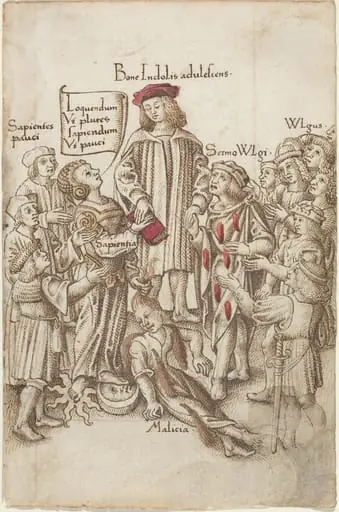 Bone Indolis adulescens.
Loquendum
Vt plures
Sapiendum
Vt pauci
Sapientes
pauci
Sermo Wlgi.
Wlgus.
Sapientia
Malicia.